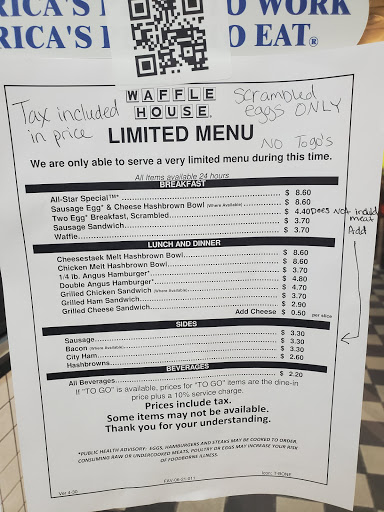 RICA'S
O WORK
RICA'S
O EAT®
Tax included
in price
WAFFLE
HOUSE®
Scrambled
eggs ONLY
NO Togo's
LIMITED MENU
We are only able to serve a very limited menu during this time.
All items available 24 hours
BREAKFAST
All-Star Special™* $ 8.60
Sausage Egg* & Cheese Hashbrown Bowl (Where Available) $ 8.60
Two Egg* Breakfast, Scrambled $ 4.40 Does Not include meat
Sausage Sandwich $ 3.70
Waffle $ 3.70
Add
LUNCH AND DINNER
Cheesesteak Melt Hashbrown Bowl $ 8.60
Chicken Melt Hashbrown Bowl $ 8.60
1/4 lb. Angus Hamburger* $ 3.70
Double Angus Hamburger* $ 4.80
Grilled Chicken Sandwich (Where Available) $ 4.70
Grilled Ham Sandwich $ 3.70
Grilled Cheese Sandwich $ 2.90
Add Cheese $ 0.50 per slice
SIDES
Sausage $ 3.30
Bacon (Where Available) $ 3.30
City Ham $ 3.30
Hashbrowns $ 2.60
BEVERAGES
All Beverages $ 2.20
If "TO GO" is available, prices for "TO GO" items are the dine-in
price plus a 10% service charge.
Prices include tax.
Some items may not be available.
Thank you for your understanding.
*PUBLIC HEALTH ADVISORY: EGGS, HAMBURGERS AND STEAKS MAY BE COOKED TO ORDER.
CONSUMING RAW OR UNDERCOOKED MEATS, POULTRY OR EGGS MAY INCREASE YOUR RISK
OF FOODBORNE ILLNESS.